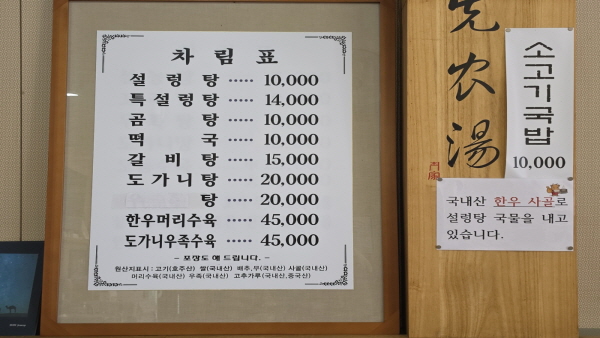 차림표
설렁탕 ····· 10,000
특설렁탕 ····· 14,000
곰탕 ····· 10,000
떡국 ····· 10,000
갈비탕 ····· 15,000
도가니탕 ····· 20,000
탕 ····· 20,000
한우머리수육 ····· 45,000
도가니우족수육 ····· 45,000
- 포장도 해 드립니다. -
원산지표시 : 고기(호주산) 쌀(국내산) 배추,무(국내산) 사골(국내산)
머리수육(국내산) 우족(국내산) 고추가루(국내산,중국산)
先農湯
소고기국밥
10,000
국내산 한우 사골로
설렁탕 국물을 내고
있습니다.